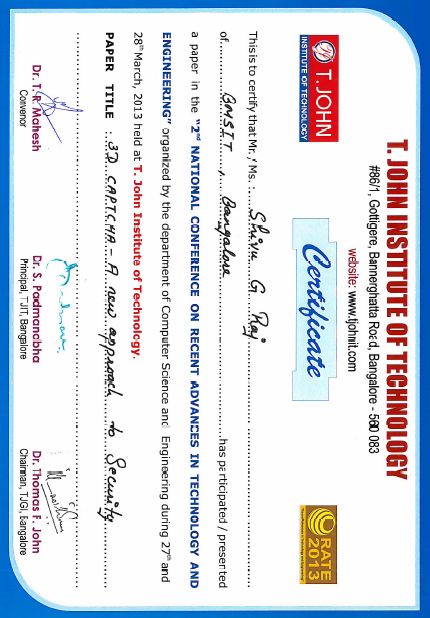 T. JOHN INSTITUTE OF TECHNOLOGY
#86/1, Gottigere, Bannerghatta Road, Bangalore - 560 083
website: www.tjohnit.com
T. JOHN
INSTITUTE OF TECHNOLOGY
Certificate
RATE
2013
This is to certify that Mr. / Ms. : Shivu G Raj
of BMSIT, Bangalore has participated / presented
a paper in the "2nd NATIONAL CONFERENCE ON RECENT ADVANCES IN TECHNOLOGY AND
ENGINEERING" organized by the department of Computer Science and Engineering during 27th and
28th March, 2013 held at T. John Institute of Technology.
PAPER TITLE : 3D CAPTCHA - A new approach to Security
Dr. T.P. Mahesh
Convenor
Dr. S. Padmanabha
Principal, TJIT, Bangalore
Dr. Thomas F. John
Chairman, TJGI, Bangalore